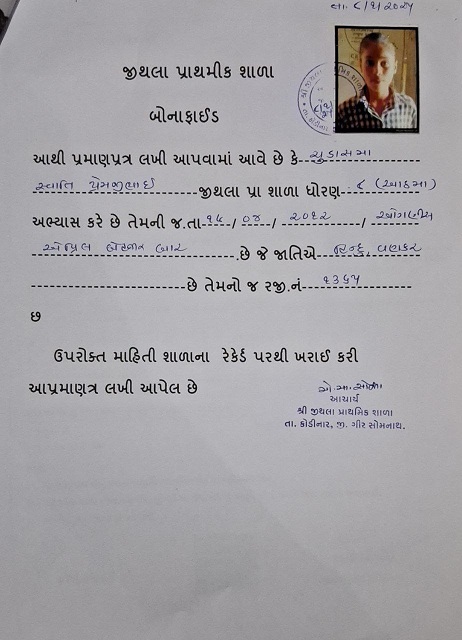 તા. ૮/૧/૨૦૨૫
જીથલા પ્રાથમીક શાળા
બોનાફાઈડ
આથી પ્રમાણપ્રત્ર લખી આપવામાં આવે છે કે ચુડાસમા
સ્વાતિ પ્રેમજીભાઈ જીથલા પ્રા શાળા ધોરણ ૮ (આઠમા)
અભ્યાસ કરે છે તેમની જ.તા ૧૯/ ૦૪ / ૨૦૧૨ / ઓગણીસ
એપ્રિલ બેહજાર બાર .છે જે જાતિએ હિન્દુ, વણકર
છે તેમનો જ રજી.નં ૧૩૬૫
છ
ઉપરોક્ત માહિતી શાળાના રેકેર્ડ પરથી ખરાઈ કરી
આપ્રમાણત્ર લખી આપેલ છે
આચાર્ય
શ્રી જીથલા પ્રાથમિક શાળા
તા. કોડીનાર, જી. ગીર સોમનાથ.